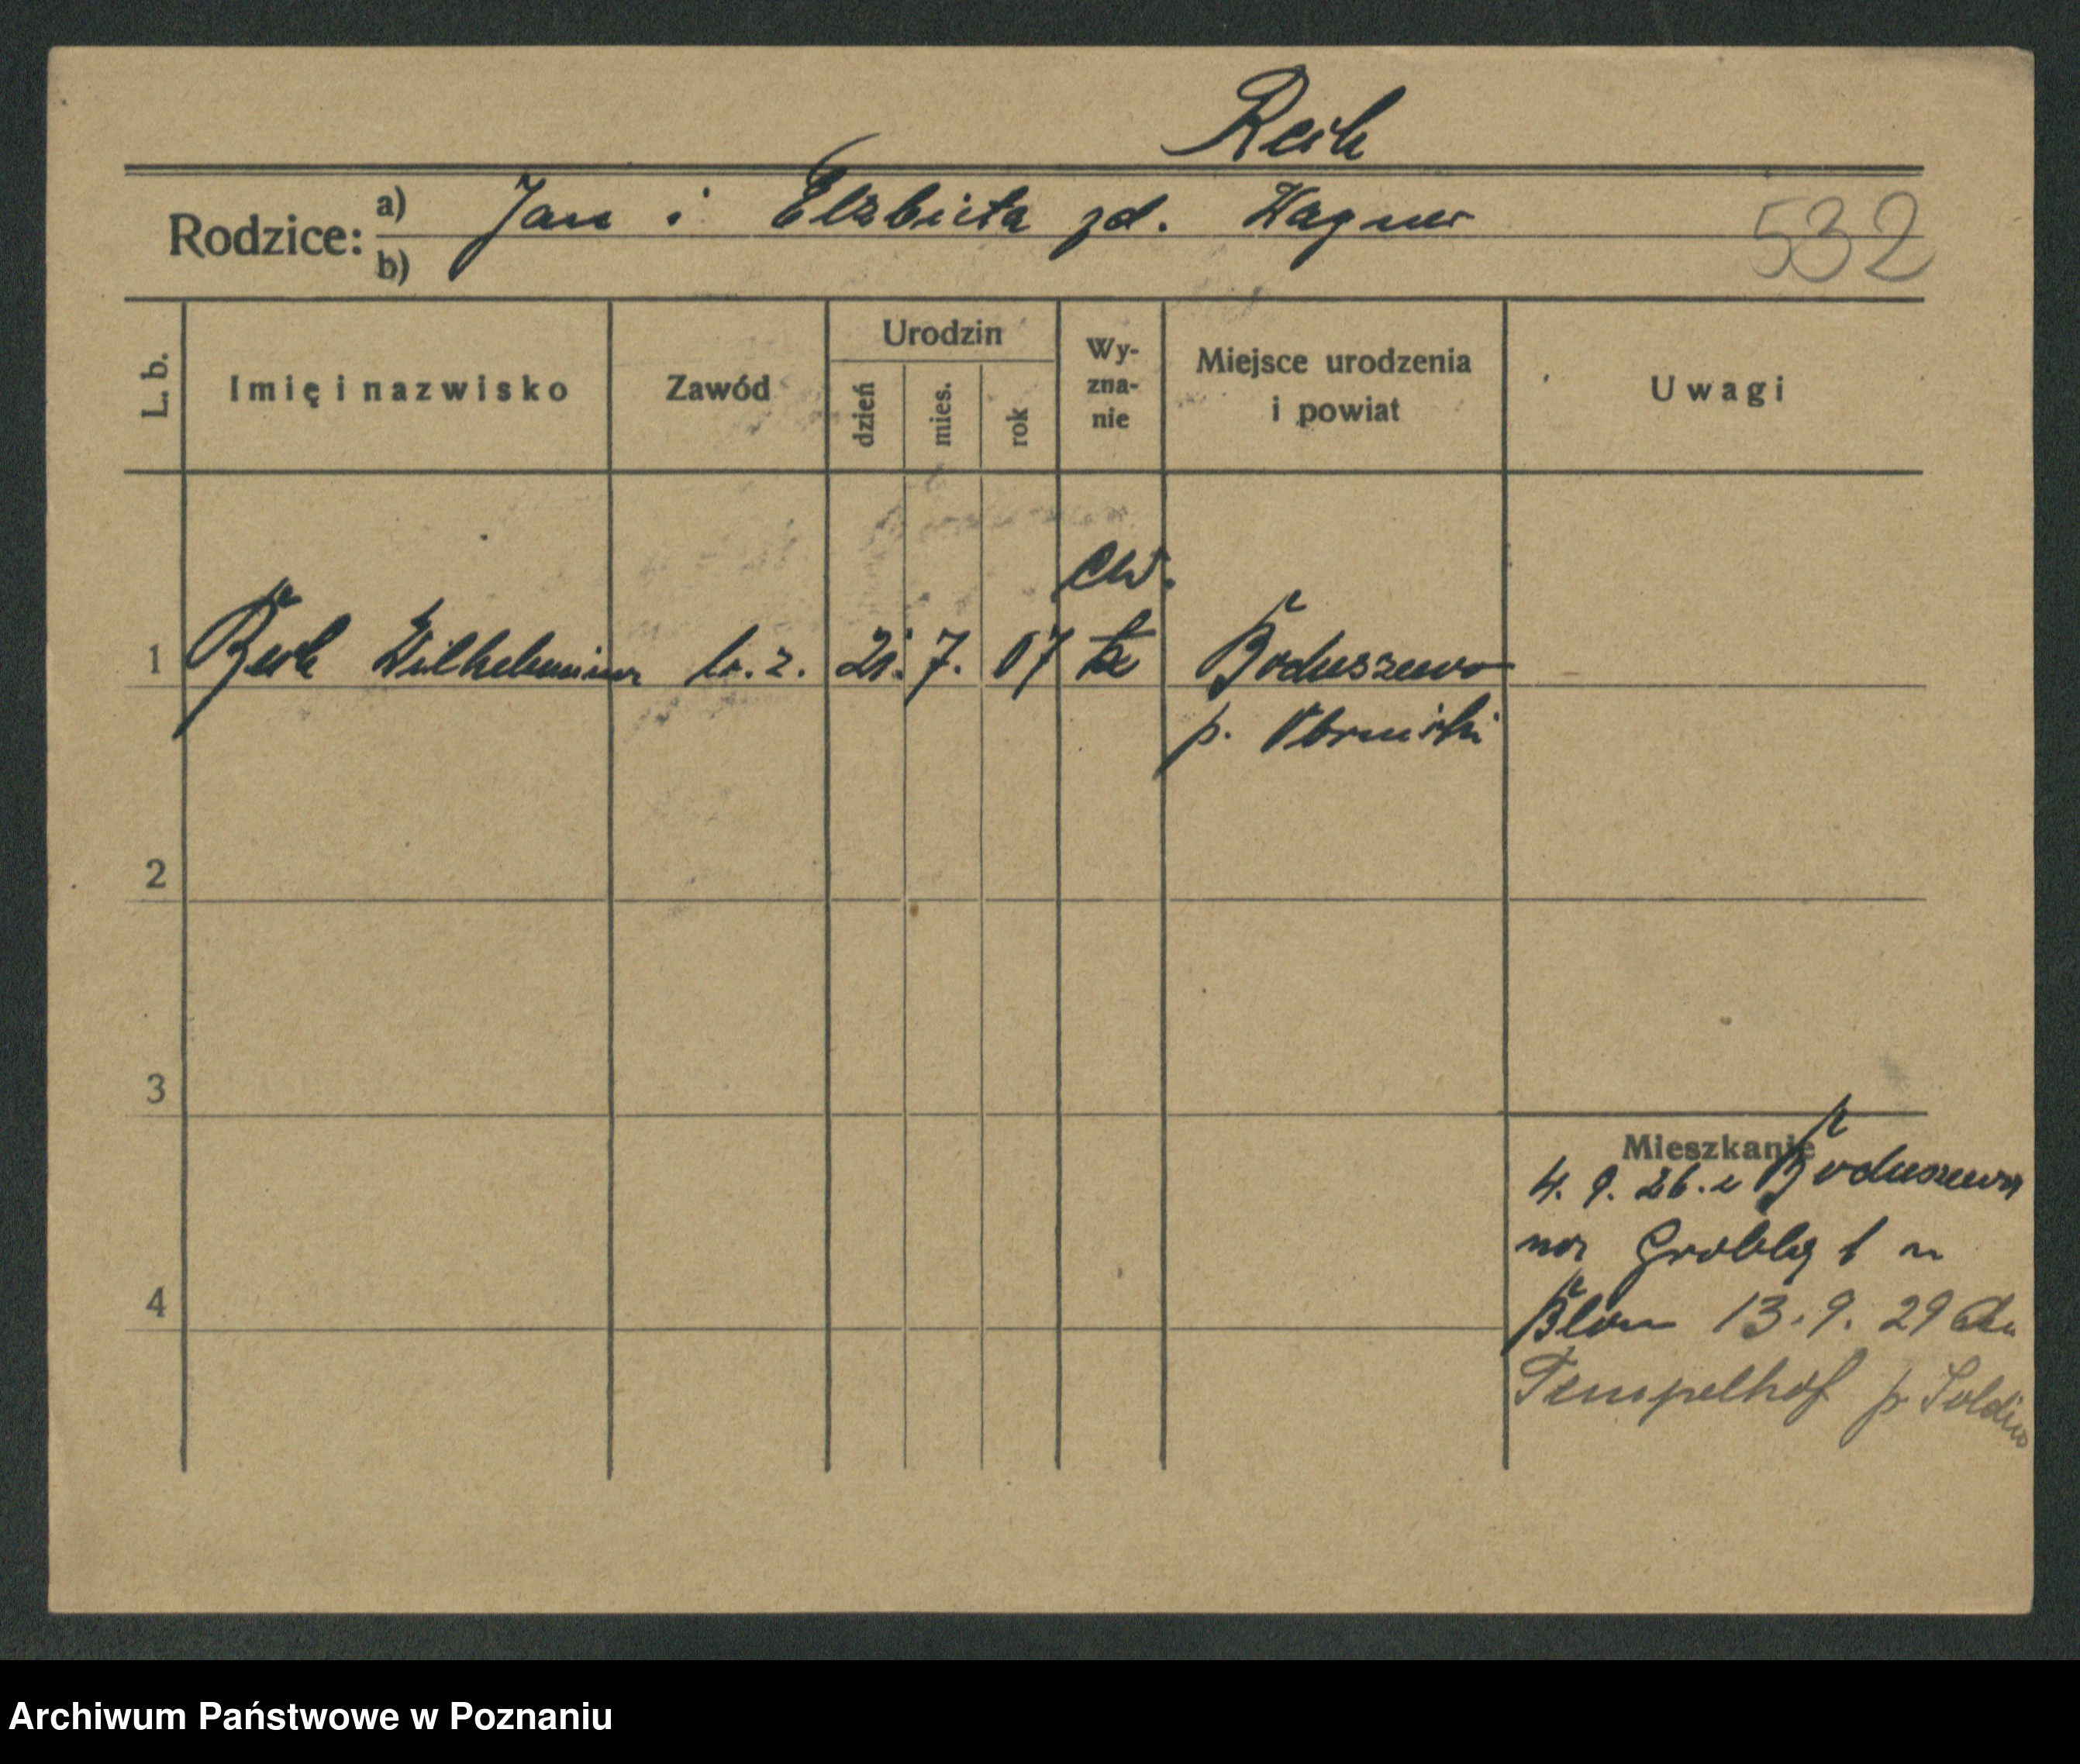 Reih
Rodzice: a) Jan i Elżbieta zd. Wagner
b)
532
L. b.
Imię i nazwisko
Zawód
Urodzin
dzień
mies.
rok
Wy-
zna-
nie
Miejsce urodzenia
i powiat
Uwagi
ew.
1 Wilhelmina b. z. 21. 7. 07 Boduszewo
p. Oborniki
2
3
Mieszkanie
4. 9. 26. z Boduszewa
na Grobla 1 u
4
13. 9. 29 do
Tempelhof p. Soldin
Archiwum Państwowe w Poznaniu